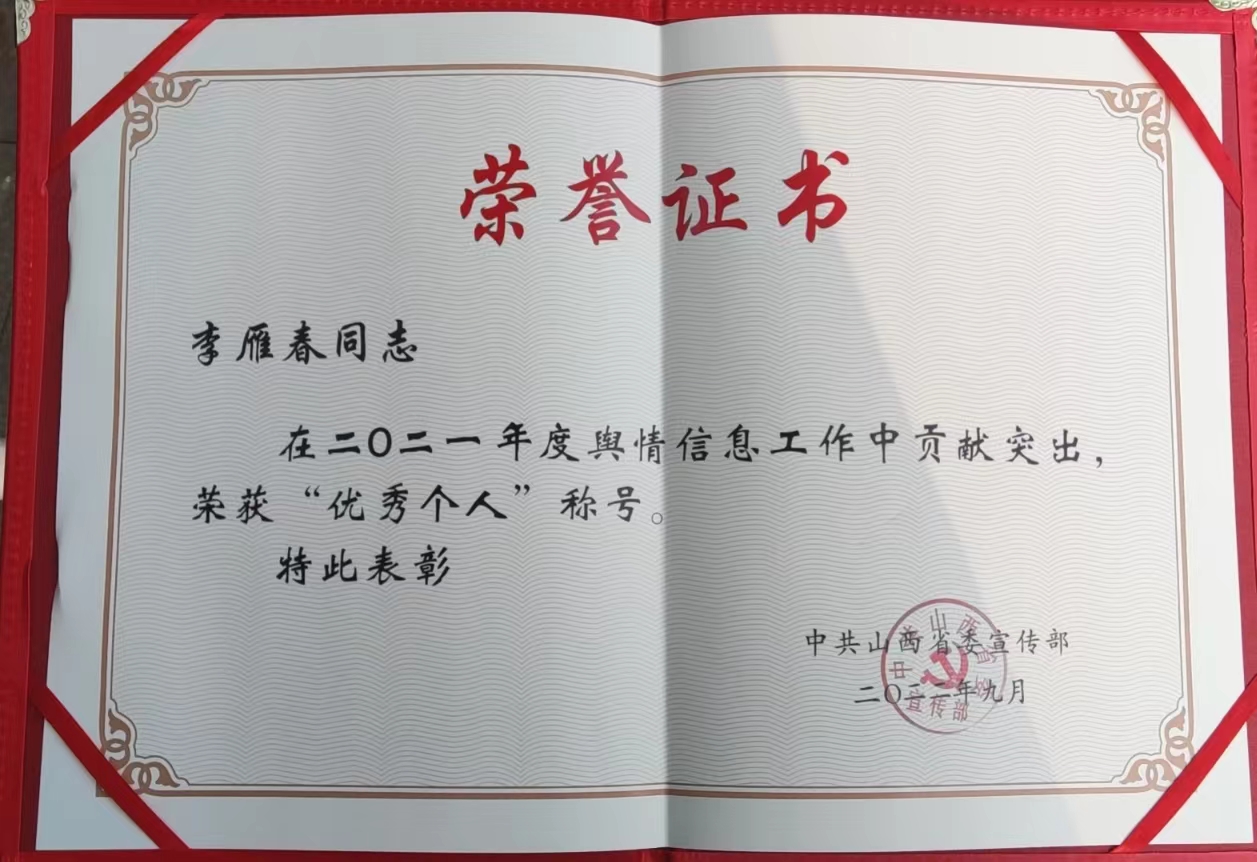 荣誉证书
李雁春同志
在二〇二一年度舆情信息工作中贡献突出，
荣获“优秀个人”称号。
特此表彰
中共山西省委宣传部
二〇二二年九月
中共山西省委
宣传部